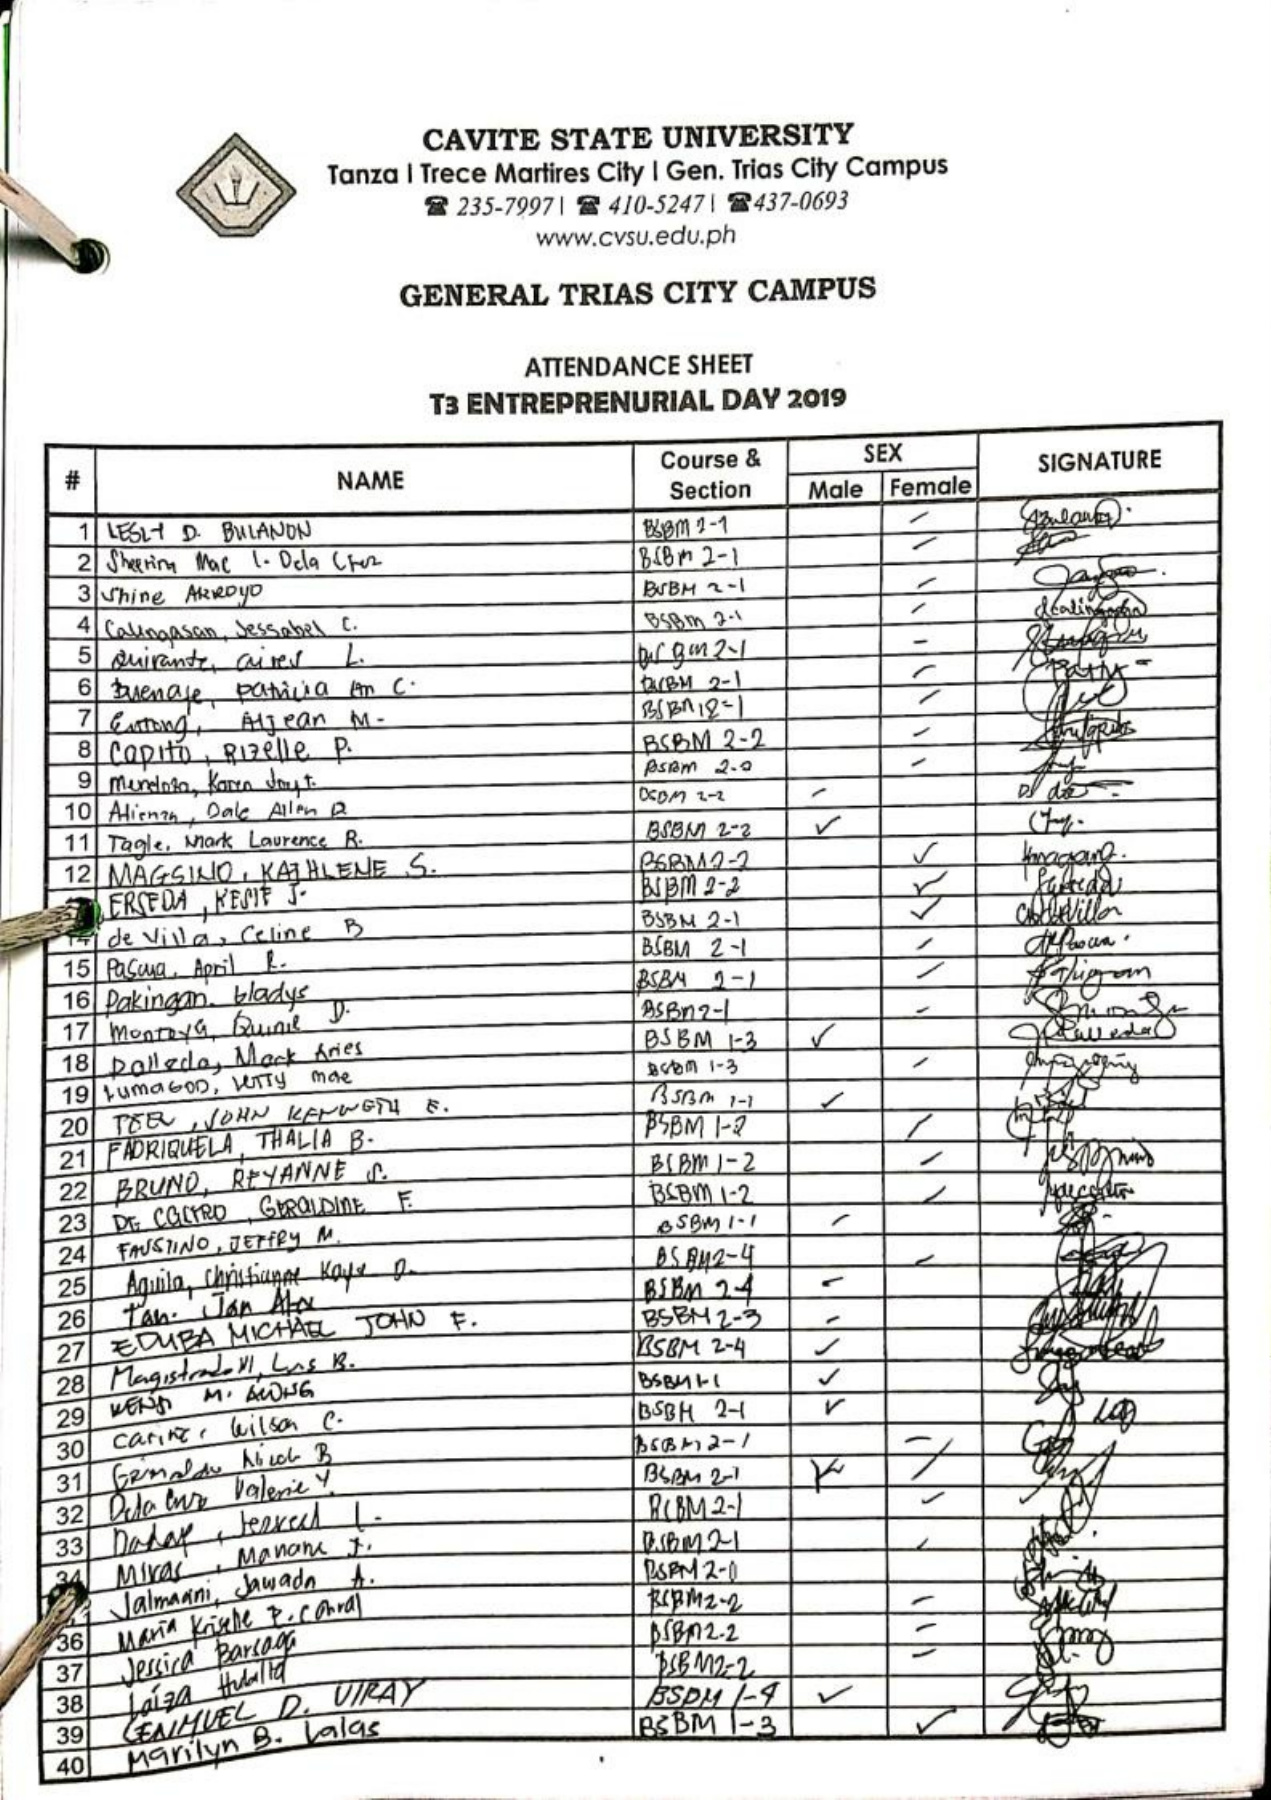 CAVITE STATE UNIVERSITY
Tanza | Trece Martires City | Gen. Trias City Campus
☎ 235-7997 | ☎ 410-5247 | ☎ 437-0693
www.cvsu.edu.ph
GENERAL TRIAS CITY CAMPUS
ATTENDANCE SHEET
T3 ENTREPRENURIAL DAY 2019
# NAME Course & Section SEX Male Female SIGNATURE
1 LESLY D. BULANON BSBM 2-1
2 Sheerina Mae L. Dela Cruz BSBM 2-1
3 Shine ARROYO BSBM 2-1
4 Calingasan, Jessabel C. BSBM 2-1
5 Quirante, Aires L. BSBM 2-1
6 Buenaje, Patricia An C. BSBM 2-1
7 Aljean M. BSBM 2-1
8 COPITO, RIZELLE P. BSBM 2-2
9 Mendoza, Karen Joy BSBM
10 Atienza, Dale Allen BSBM 2-2
11 Tagle, Mark Laurence R. BSBM 2-2
12 MAGSINO, KATHLENE S. BSBM 2-2
ERSEDA, KESIE J. BSBM 2-2
14 de Villa, Celine B BSBM 2-1
15 Pascua, April R. BSBM 2-1
16 Pakingan, Gladys BSBM 2-1
17 Montoya, Quinie D. BSBM 2-1
18 Dalleda, Mark Aries BSBM 1-3
19 LUMAGOD, mae BSBM 1-3
20 JOHN KENNETH E. BSBM 1-1
21 FADRIQUELA, THALIA B. BSBM 1-2
22 BRUNO, REYANNE S. BSBM 1-2
23 DE CASTRO, GERALDINE F. BSBM 1-2
24 FAUSTINO, JEFFRY M. BSBM 1-1
25 Aguila, Christianne Kaye D. BSBM 2-4
26 Tan, Jan Alex BSBM 2-4
27 EDUBA MICHAEL JOHN F. BSBM 2-3
28 Magistrado, Luis B. BSBM 2-4
29 M. BSBM 1-1
30 Wilson C. BSBM 2-1
31 Grimaldo Nicole B BSBM 2-1
32 Dela Cruz Valerie Y. BSBM 2-1
33 L. BSBM 2-1
34 Miras, J. BSBM 2-1
Jalmaani, Jawada A. BSBM
36 Maria Kriselle P. Cabral BSBM 2-2
37 Jessica Barsaga BSBM 2-2
38 Laiza Hubilla BSBM 2-2
39 LENIMUEL D. VIRAY BSBM 1-4
40 Marilyn B. Lalas BSBM 1-3